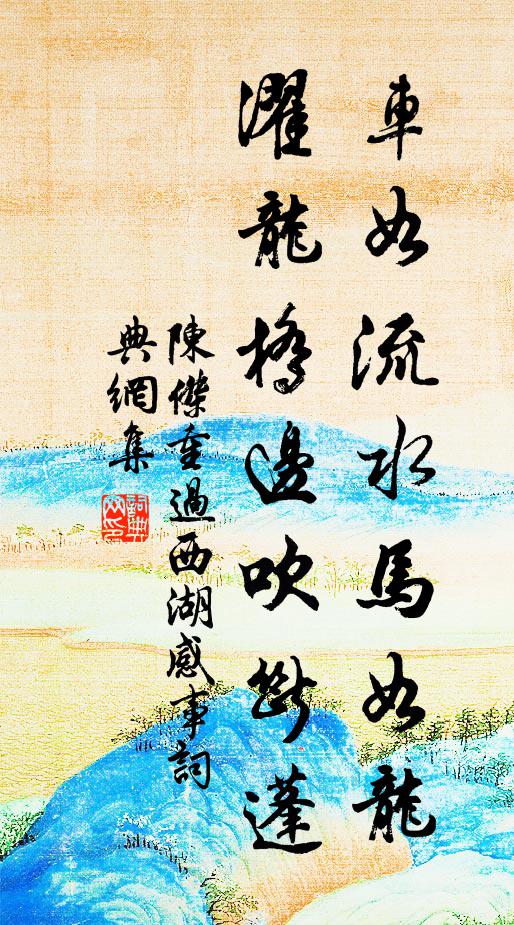 車如流水馬如龍
濯龍橋邊吹斷蓬
陳傑重過西湖感事詞
典網集